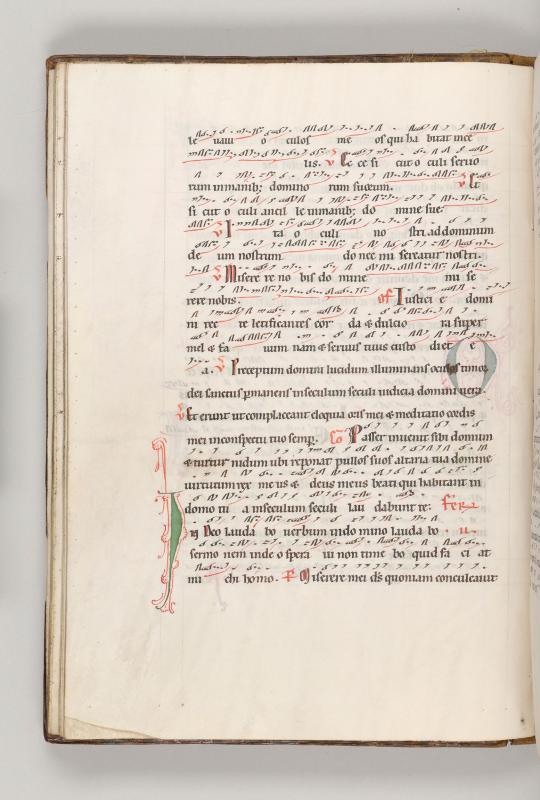 le uaui o culos me os qui ha bitat in ce
lis. V Ec ce si cut o culi seruo
rum in manib; domino rum suorum. V Et
si cut o culi ancil le in manib; do mine sue
V I ta o culi no stri ad dominum
de um nostrum do nec mi sereatur nostri.
V Misere re no bis do mine mi se
rere nobis. Of Iustici e domi
ni rec te letificantes cor da & dulcio ra super
mel & fa uum nam & seruus tuus custo diet e
a. V Preceptum domini lucidum illuminans oculos timor
dei sanctus permanens in seculum seculi iudicia domini uera.
V Et erunt ut complaceant eloquia oris mei & meditatio cordis
mei in conspectu tuo semp. Co Passer inuenit sibi domum
& turtur nidum ubi reponat pullos suos altaria tua domine
uirtutum rex me us & deus meus beati qui habitant in
domo tu a in seculum seculi lau dabunt te: feria
IN Deo lauda bo uerbum in do mino lauda bo ii
sermo nem in de o spera ui non time bo quid fa ci at
mi chi homo. P Miserere mei ds quoniam conculcauit